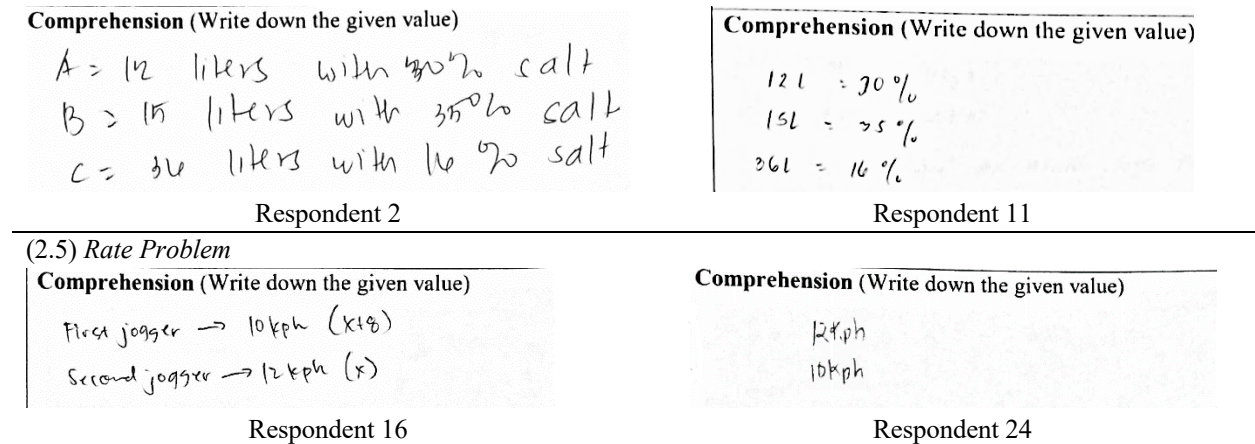 Comprehension (Write down the given value)
A = 12 liters with 30% salt
B = 15 liters with 35% salt
C = 36 liters with 16% salt
Respondent 2
Comprehension (Write down the given value)
12 L = 30%
15L = 35%
36L = 16%
Respondent 11
(2.5) Rate Problem
Comprehension (Write down the given value)
First jogger → 10kph (x+8)
Second jogger → 12kph (x)
Respondent 16
Comprehension (Write down the given value)
12kph
10kph
Respondent 24